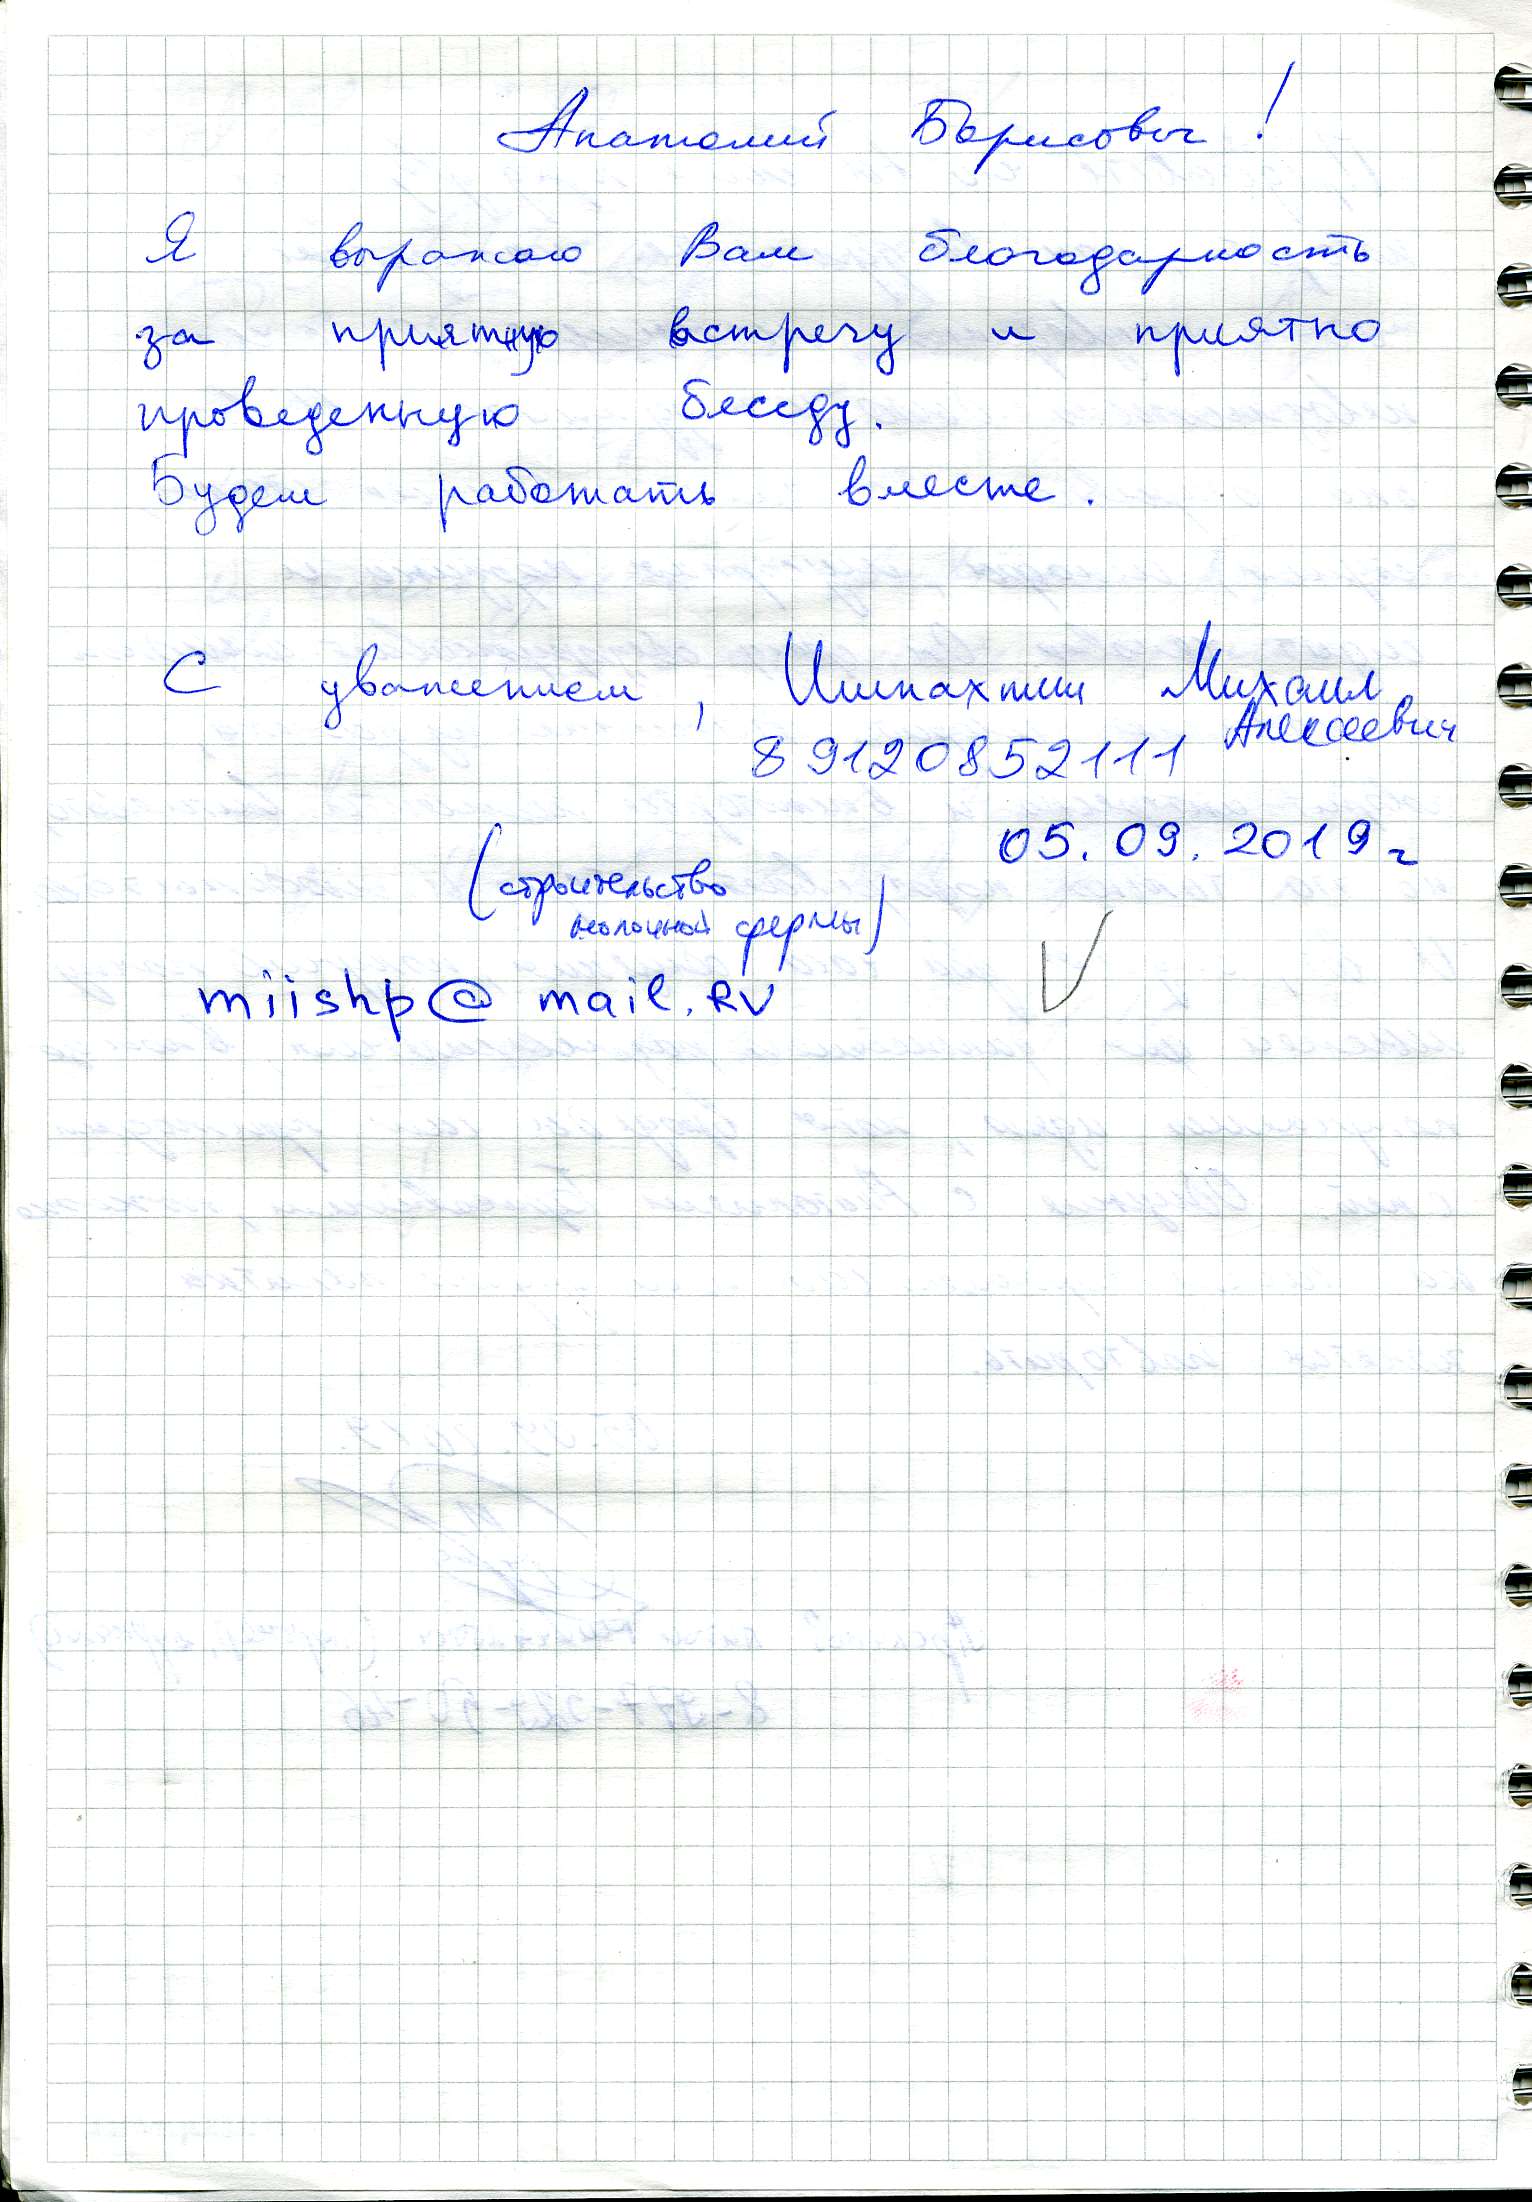 Анатолий Борисович!
Я выражаю Вам благодарность
за приятную встречу и приятно
проведенную беседу.
Будем работать вместе.
С уважением, Ишпахтин Михаил
Алексеевич
89120852111
05.09.2019г
(строительство
молочной фермы)
miishp@mail.RU